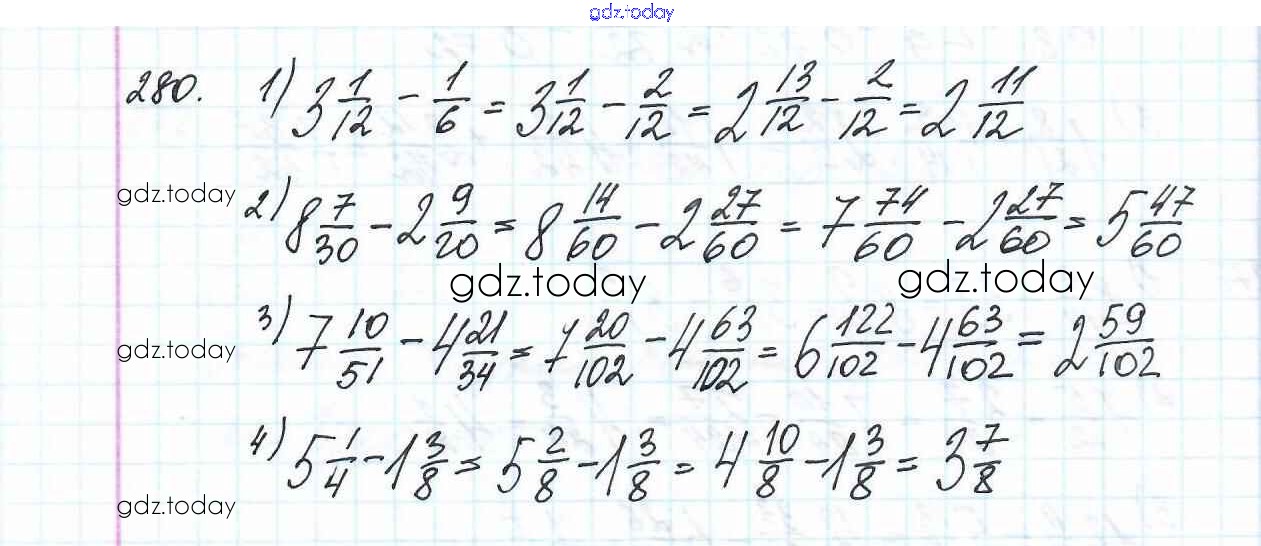 gdz.today
280. 1) 3 1/12 - 1/6 = 3 1/12 - 2/12 = 2 13/12 - 2/12 = 2 11/12
gdz.today
2) 8 7/30 - 2 9/20 = 8 14/60 - 2 27/60 = 7 74/60 - 2 27/60 = 5 47/60
gdz.today gdz.today
3) 7 10/51 - 4 21/34 = 7 20/102 - 4 63/102 = 6 122/102 - 4 63/102 = 2 59/102
gdz.today
4) 5 1/4 - 1 3/8 = 5 2/8 - 1 3/8 = 4 10/8 - 1 3/8 = 3 7/8
gdz.today